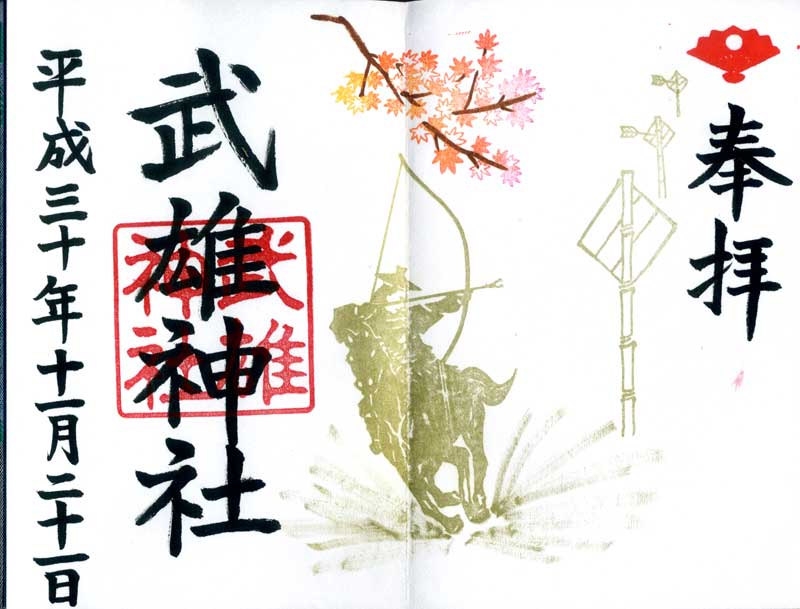 奉拝
武雄神社
武雄
神社
平成三十年十一月二十一日